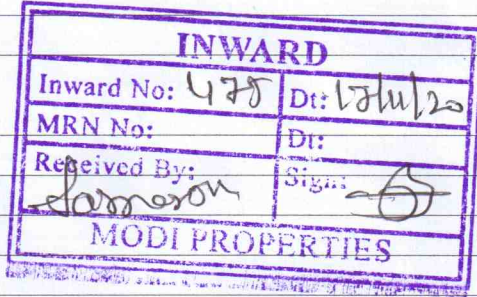 INWARD
Inward No: 478 Dt: 17/11/20
MRN No: Dt:
Received By: Sign:
MODI PROPERTIES